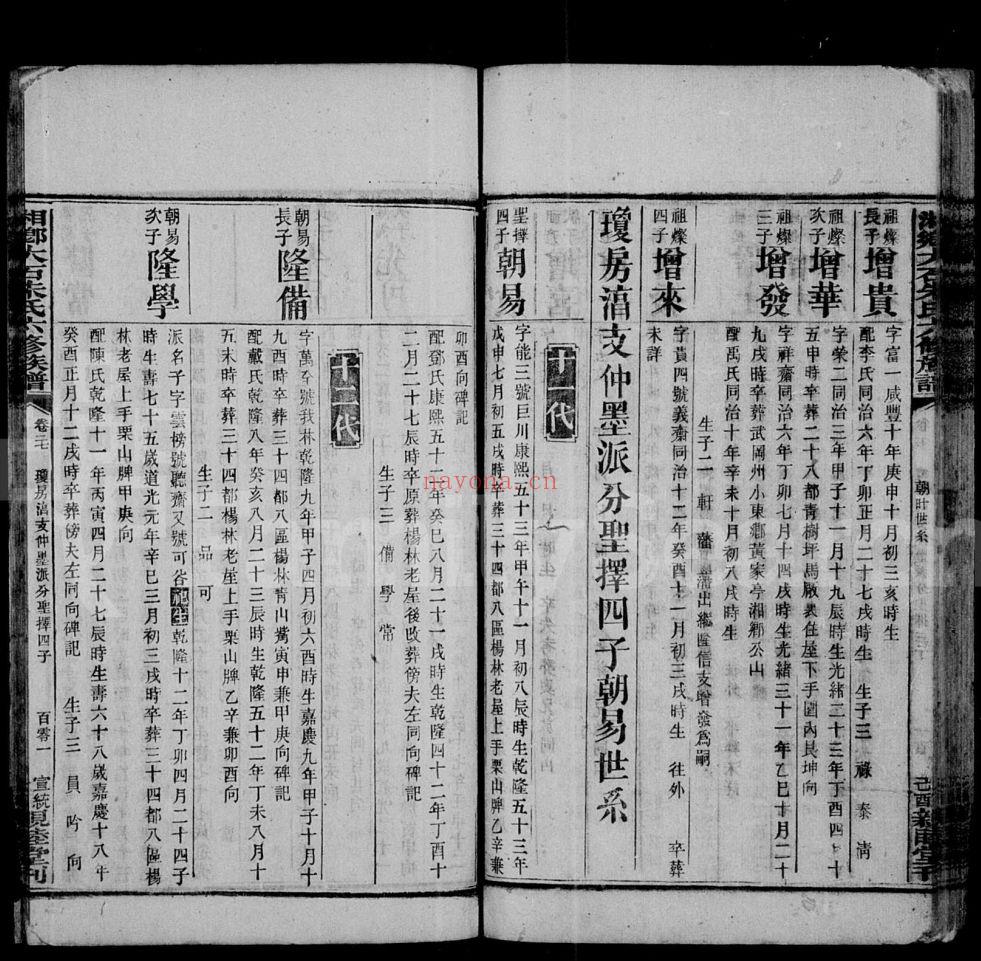 祖燦長子 增貴
字富一咸豐十年庚申十月初三亥時生
配李氏同治六年丁卯正月二十七戌時生 生子三 祿 泰 清
祖燦次子 增華
字榮二同治三年甲子十一月十九辰時生光緒二十三年丁酉四 十
五申時卒葬二十八都青樹坪馬 住屋下手園內艮坤向
祖燦三子 增發
字祥齋同治六年丁卯七月十四戌時生光緒三十一年乙巳十月二十
九戌時卒葬武岡州小東鄉黃家亭湘鄉公山
配禹氏同治十年辛未十月初八戌時生
生子二 軒 藩 出繼 信支增發為嗣
祖燦四子 增來
字貴四號義齋同治十二年癸酉十一月初三戌時生 往外 卒葬
未詳
瓊房 支仲墨派分聖擇四子朝易世系
十一代
聖擇四子 朝易
字能三號巨川康熙五十三年甲午十一月初八辰時生乾隆五十三年
戊申七月初五戌時卒葬三十四都八區楊林老屋上手栗山牌乙辛兼
卯酉向碑記
配鄧氏康熙五十二年癸巳八月二十一戌時生乾隆四十二年丁酉十
二月二十七辰時卒原葬楊林老屋後改葬傍夫左同向碑記
生子三 備 學 常
十二代
朝易長子 隆備
字萬 號我林乾隆九年甲子四月初六酉時生嘉慶九年甲子十月十
九酉時卒葬三十四都八區楊林青山 寅申兼甲庚向碑記
配戴氏乾隆八年癸亥八月二十三辰時生乾隆五十二年丁未八月十
五未時卒葬三十四都楊林老屋上手栗山牌乙辛兼卯酉向
生子二 品 可
朝易次子 隆學
派名子字雲榜號聽齋又號可谷 生乾隆十二年丁卯四月二十四子
時生壽七十五歲道光元年辛巳三月初三戌時卒葬三十四都八區楊
林老屋上手栗山牌甲庚向
配陳氏乾隆十一年丙寅四月二十七辰時生壽六十八歲嘉慶十八年
癸酉正月十二戌時卒葬傍夫左同向碑記 生子三 員 吟 向
湘鄉大石朱氏六修族譜 卷 瓊房 支仲墨派分聖擇四子 百零一 宣統 親睦堂刊
nayona.cn